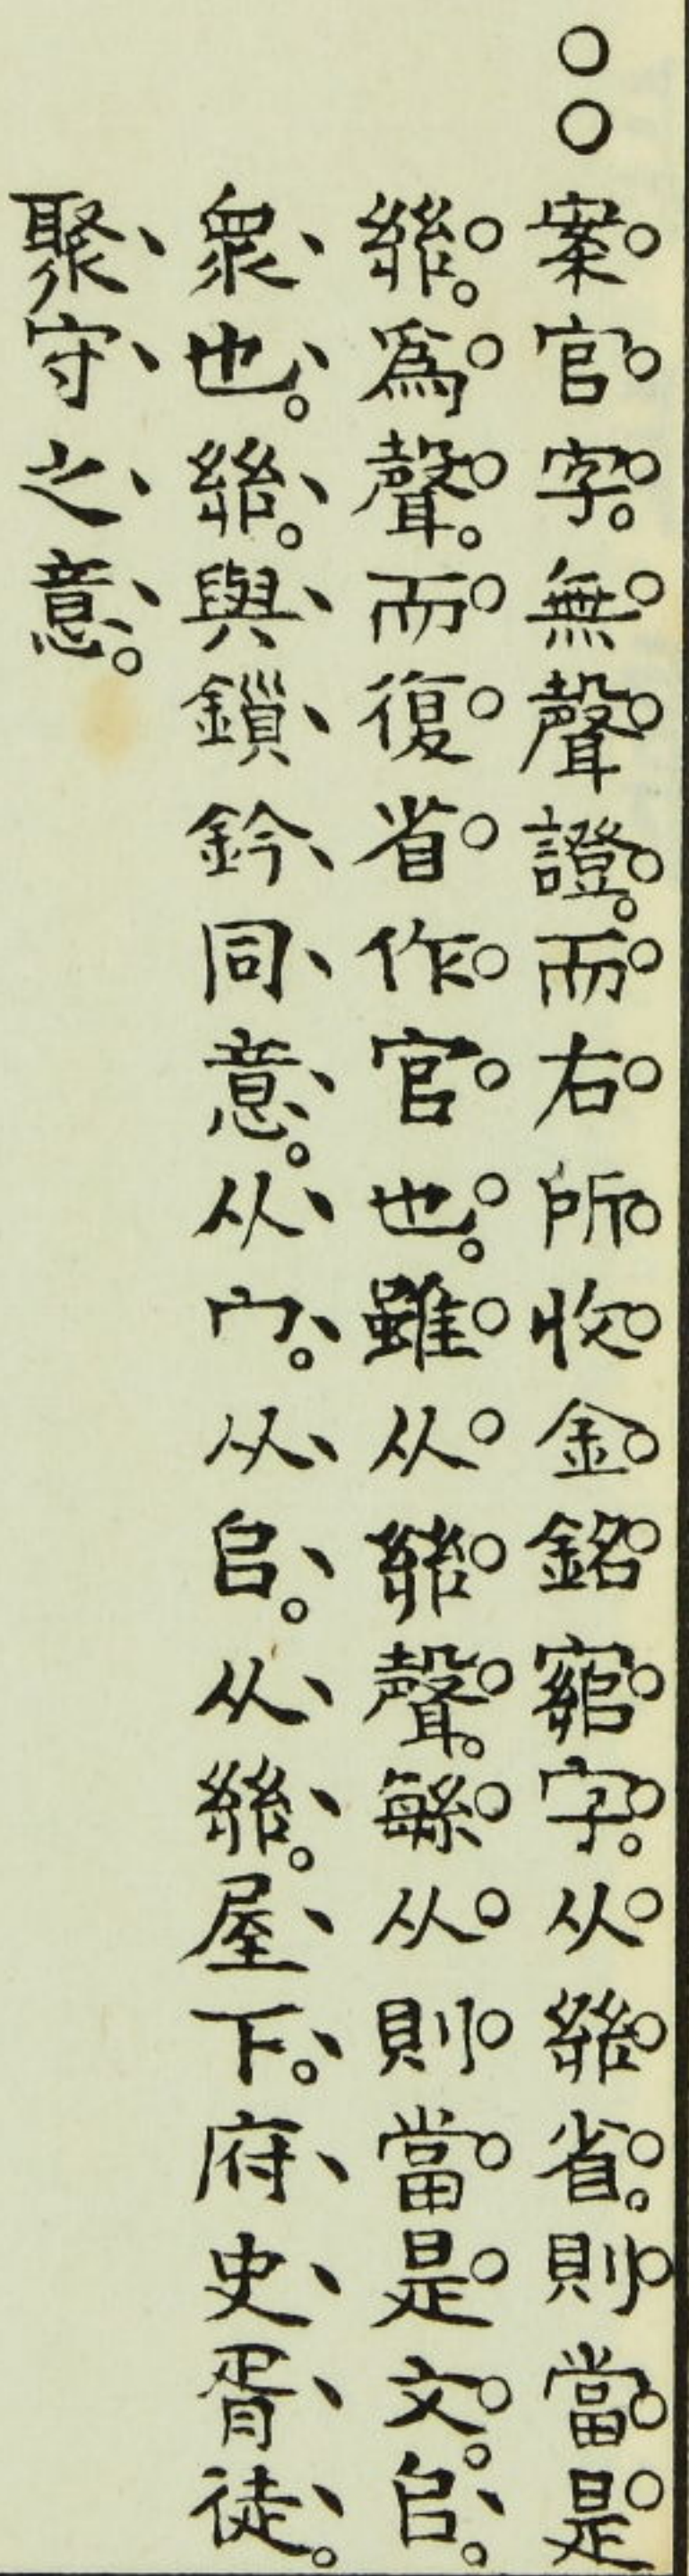 ○○案官字。無聲證。而右所收金銘字。从省。則當是
。爲聲。而復省作官也。雖从聲。緐从則當是文。𠂤。
衆也。。與鎖鈐同意。从宀。从𠂤。从。屋下。府史胥徒。
聚守之意。